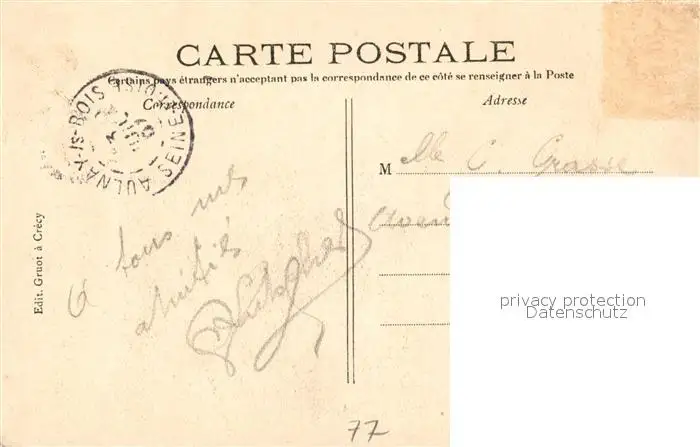 CARTE POSTALE
Certains pays étrangers n'acceptant pas la correspondance de ce côté se renseigner à la Poste
Correspondance
Adresse
AULNAY-ls-BOIS SEINE-ET-OISE
M elle C. Grasse
Aven
à tous mes
amitiés
Edit. Gruot à Crécy
privacy protection
Datenschutz
77